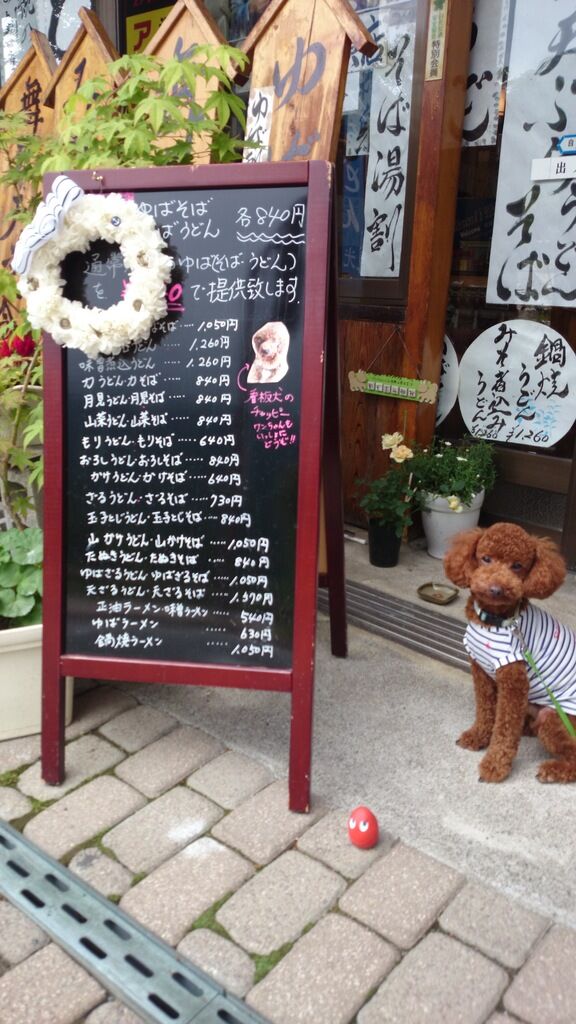 ゆばそば
ばうどん 各840円
通常 ゆばそば・うどん)
を 0 で提供致します
そば・・・・1,050円
うどん・・・・1,260円
味噌煮込うどん・・・・1,260円
力うどん・力そば・・・・・840円
月見うどん・月見そば・・・・840円
山菜うどん・山菜そば・・・・840円
もりうどん・もりそば・・・・640円
おろしうどん・おろしそば・・・・840円
かけうどん・かけそば・・・・・640円
ざるうどん・ざるそば・・・・730円
玉子とじうどん・玉子とじそば・・・・840円
山かけうどん・山かけそば・・・・・1,050円
たぬきうどん・たぬきそば・・・・・840円
ゆばざるうどん・ゆばざるそば・・・・・1,050円
天ざるうどん・天ざるそば・・・・・1,370円
正油ラーメン・味噌ラーメン・・・・・540円
ゆばラーメン・・・・・630円
鍋焼ラーメン・・・・・1,050円
看板犬の
チャッピー
ワンちゃんも
いっしょに
どうぞ!!
舞
ゆば
そば湯割
特別企画
天ぷらそば
鍋焼
うどん
みそ煮込み
うどん
¥1,260
¥1,260